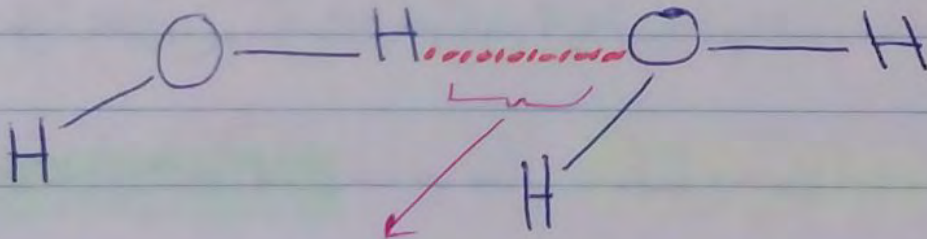 O H O H
H
H